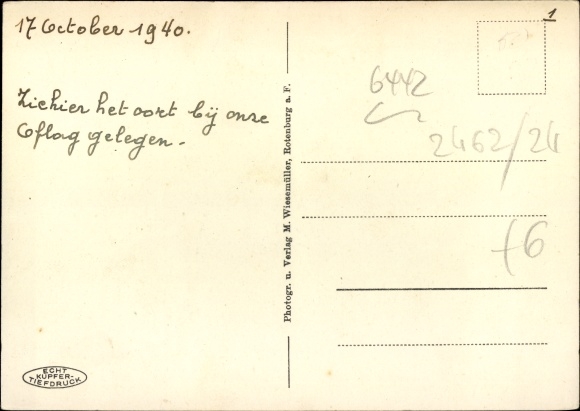 17 October 1940.
1
Ziehier het oort bij onze
Oflag gelegen.
6442
2462/24
f6
Photogr. u. Verlag M. Wiesemüller, Rotenburg a. F.
ECHT
KUPFER-
TIEFDRUCK